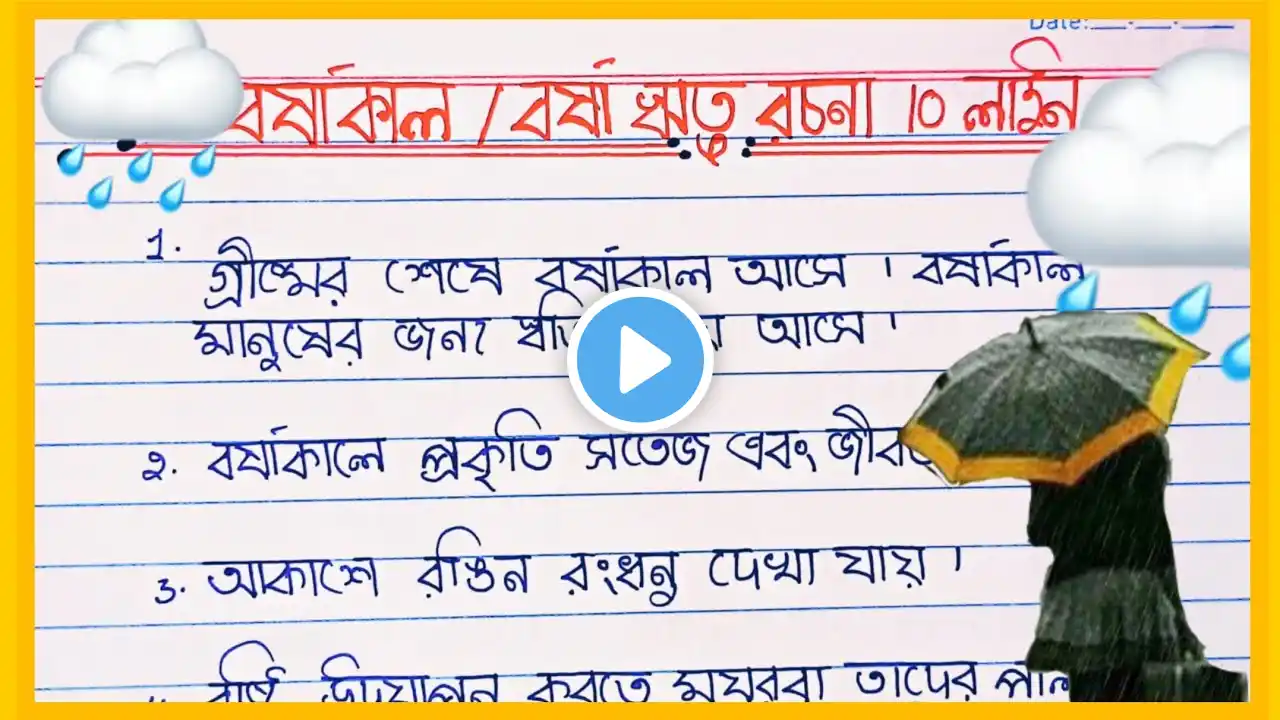 Date:
বর্ষাকাল / বর্ষা ঋতু রচনা 10 লাইন
1. গ্রীষ্মের শেষে বর্ষাকাল আসে । বর্ষাকাল
মানুষের জন্য আসে ।
২. বর্ষাকালে প্রকৃতি সতেজ এবং
3. আকাশে রঙিন রংধনু দেখা যায় ।
উদযাপন করতে ময়ূররা তাদের